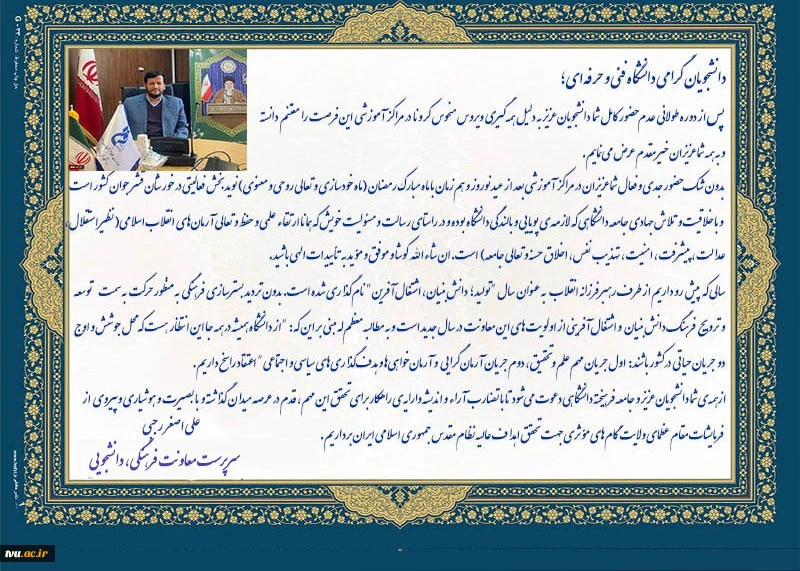 دانشجویان گرامی دانشگاه فنی و حرفه ای؛
پس از دوره طولانی عدم حضور کامل شما دانشجویان عزیز به دلیل همه گیری ویروس منحوس کرونا در مراکز آموزشی این فرصت را مغتنم دانسته
و به همه شما عزیزان خیر مقدم عرض می نمایم.
بدون شک حضور جدی و فعال شما عزیزان در مراکز آموزشی بعد از عید نوروز و هم زمان با ماه مبارک رمضان (ماه خودسازی و تعالی روحی و معنوی) نوید بخش فعالیتی در خور شان قشر جوان کشور است
و با خلاقیت و تلاش جهادی جامعه دانشگاهی که لازمه ی پویایی و بالندگی دانشگاه بوده و در راستای رسالت و مسئولیت خویش که همانا ارتقاء علمی و حفظ و تعالی آرمان های انقلاب اسلامی (نظیر استقلال،
عدالت، پیشرفت، امنیت، تهذیب نفس، اخلاق حسنه و تعالی جامعه) است. ان شاء الله کوشا و موفق و مؤید به تأییدات الهی باشید.
سالی که پیش رو داریم از طرف رهبر فرزانه انقلاب به عنوان سال "تولید؛ دانش بنیان، اشتغال آفرین" نام گذاری شده است. بدون تردید بسترسازی فرهنگی به منظور حرکت به سمت توسعه
و ترویج فرهنگ دانش بنیان و اشتغال آفرینی از اولویت های این معاونت در سال جدید است و به مطالبه معظم له مبنی بر این که: "از دانشگاه همیشه در همه جا این انتظار هست که محل جوشش و اوج
دو جریان حیاتی در کشور باشند: اول جریان مهم علم و تحقیق، دوم جریان آرمان گرایی و آرمان خواهی ها و هدف گذاری های سیاسی و اجتماعی" اعتقاد راسخ داریم.
از همه ی شما دانشجویان عزیز و جامعه فرهیخته دانشگاهی دعوت می شود تا با تضارب آراء و اندیشه و ارایه ی راهکار برای تحقق این مهم، قدم در عرصه میدان گذاشته و با بصیرت و هوشیاری و پیروی از
فرمایشات مقام عظمای ولایت گام های مؤثری جهت تحقق اهداف عالیه نظام مقدس جمهوری اسلامی ایران برداریم.
علی اصغر رجبی
سرپرست معاونت فرهنگی، دانشجویی
tvu.ac.ir